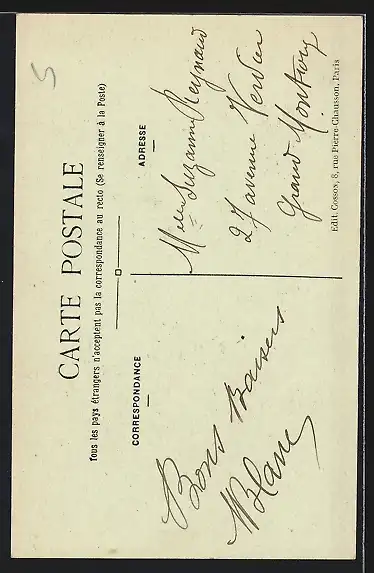 5
CARTE POSTALE
Tous les pays étrangers n'acceptent pas la correspondance au recto (Se renseigner à la Poste)
CORRESPONDANCE
Bons Baisers
MBlanc
ADRESSE
Melle Suzanne Reynaud
27 avenue Verdier
Grand Montroug
Edit. Cossos, 8, rue Pierre-Chausson, Paris